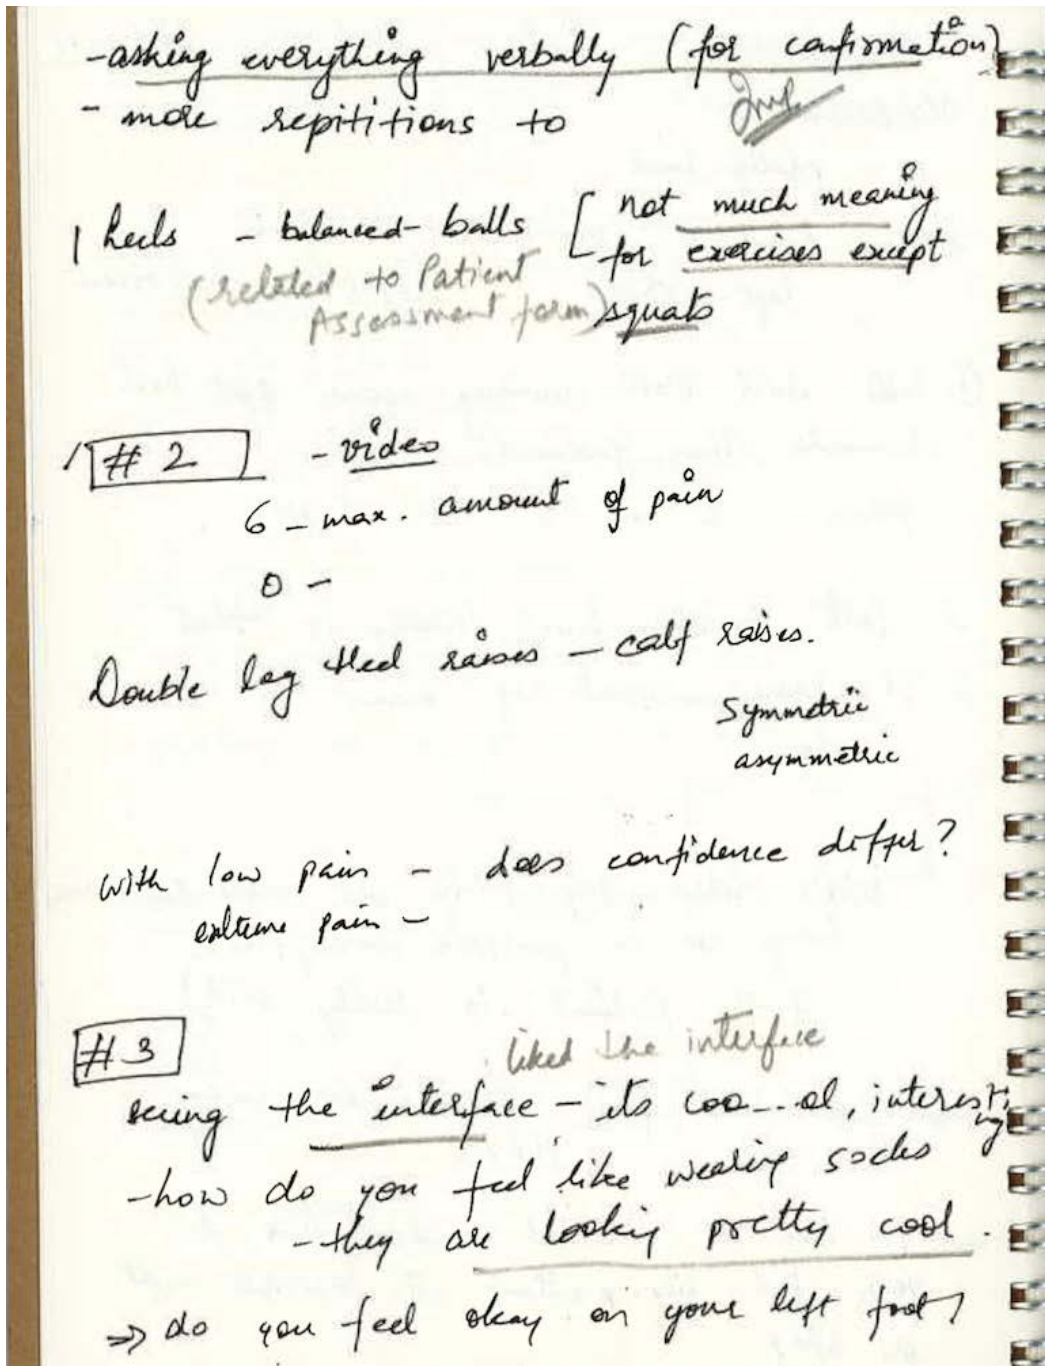 -asking everything verbally (for confirmation)
Imp.
- more repititions to
heels - balanced- balls [ not much meaning
for exercises except
(related to Patient
Assessment form) squats
#2 - video
6 - max. amount of pain
0 -
Double leg Heel raises - calf raises.
Symmetric
asymmetric
with low pain - does confidence differ?
extreme pain -
#3 liked the interface
seeing the interface - its coo...ol, interesting
-how do you feel like wearing socks
- they are looking pretty cool.
⇒ do you feel okay on your left foot?